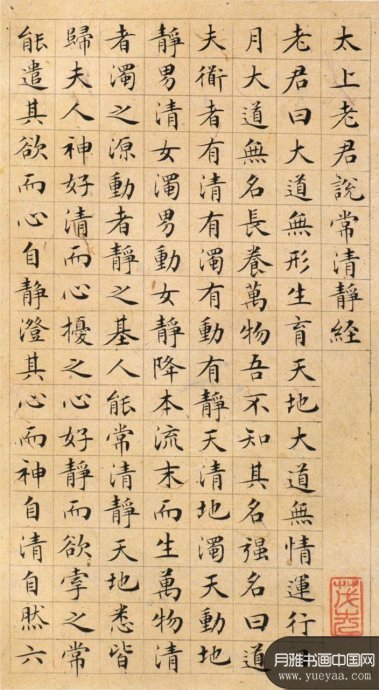 太上老君說常清靜経
老君曰大道無形生育天地大道無情運行
月大道無名長養萬物吾不知其名强名曰道
夫衜者有清有濁有動有靜天清地濁天動地
靜男清女濁男動女靜降本流末而生萬物清
者濁之源動者靜之基人能常清靜天地悉皆
歸夫人神好清而心擾之心好靜而欲牽之常
能遣其欲而心自静澄其心而神自清自然六
月雅书画中国网
www.yueyaa.com